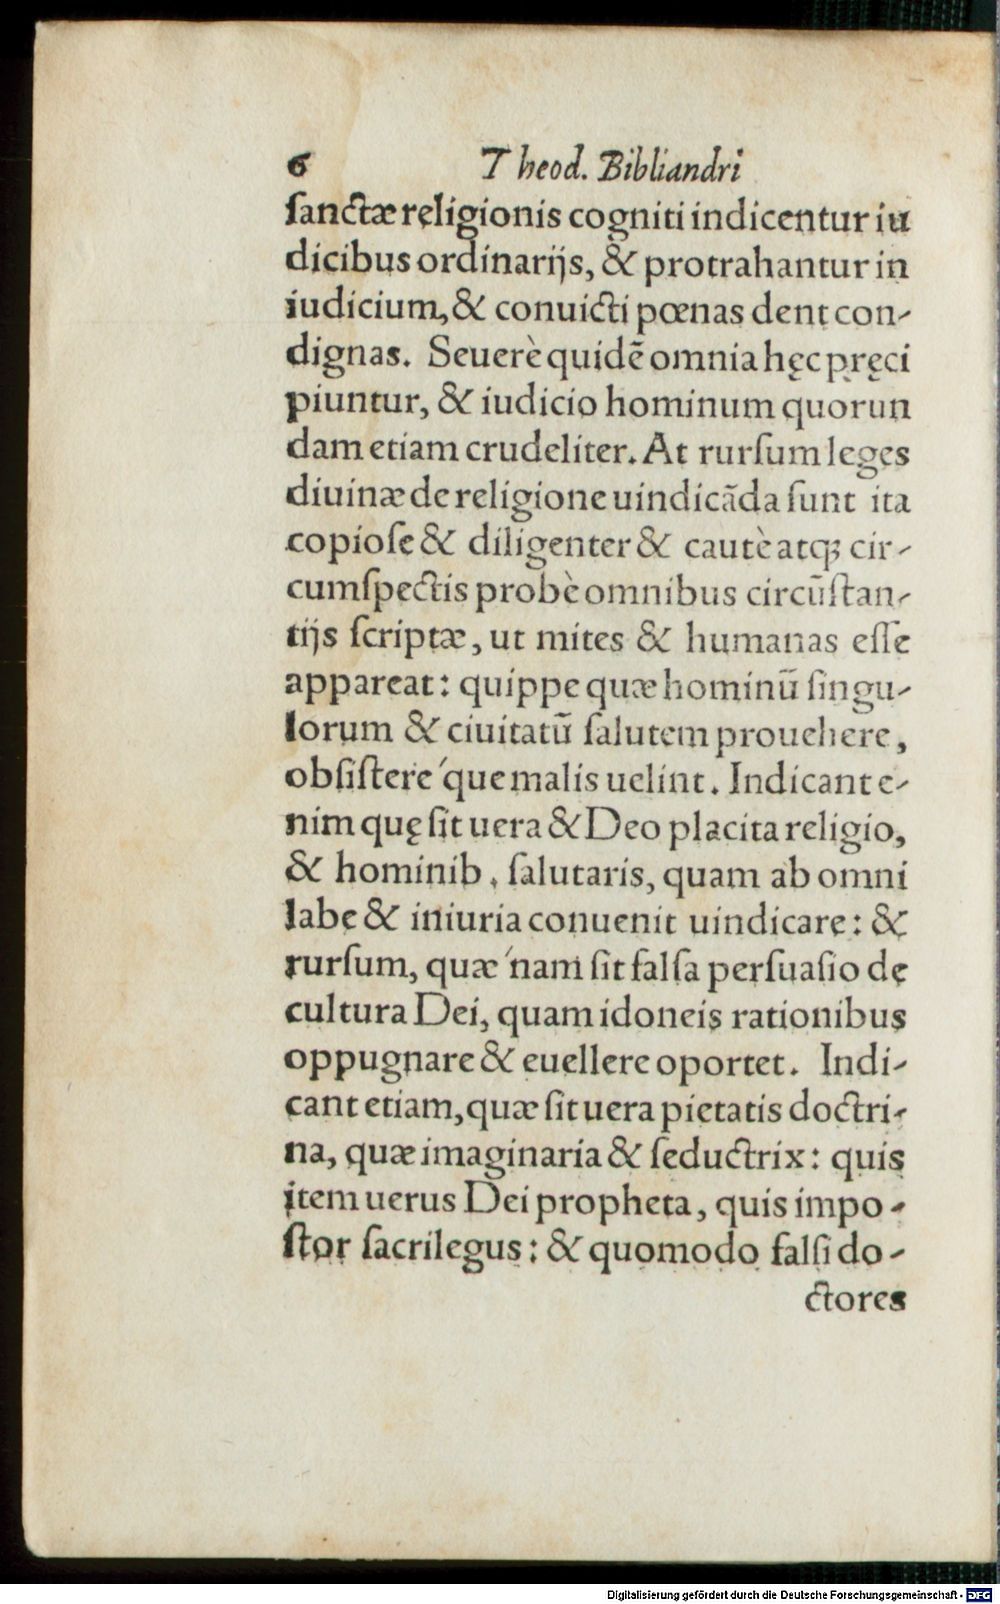 6 Theod. Bibliandri
ſanctæ religionis cogniti indicentur iu
dicibus ordinarijs, & protrahantur in
iudicium, & conuicti pœnas dent con-
dignas. Seuerè quidē omnia hęc pręci
piuntur, & iudicio hominum quorun
dam etiam crudeliter. At rurſum leges
diuinæ de religione uindicāda ſunt ita
copioſe & diligenter & cautè atq; cir-
cumſpectis probè omnibus circūſtan-
tijs ſcriptæ, ut mites & humanas eſſe
appareat: quippe quæ hominū ſingu-
lorum & ciuitatū ſalutem prouehere,
obſiſtere´que malis uelint. Indicant e-
nim quę ſit uera & Deo placita religio,
& hominib. ſalutaris, quam ab omni
labe & iniuria conuenit uindicare: &
rurſum, quæ´nam ſit falſa perſuaſio de
cultura Dei, quam idoneis rationibus
oppugnare & euellere oportet. Indi-
cant etiam, quæ ſit uera pietatis doctri-
na, quæ imaginaria & ſeductrix: quis
item uerus Dei propheta, quis impo-
ſtor ſacrilegus: & quomodo falſi do-
ctores
Digitalisierung gefördert durch die Deutsche Forschungsgemeinschaft - DFG